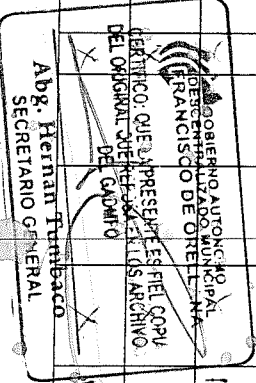 GOBIERNO AUTONOMO
DESCENTRALIZADO MUNICIPAL
FRANCISCO DE ORELLANA
CERTIFICO: QUE LA PRESENTE ES FIEL COPIA
DEL ORIGINAL QUE EN LOS ARCHIVO
DEL GADMFO
Abg. Hernan Tumbaco
SECRETARIO GENERAL